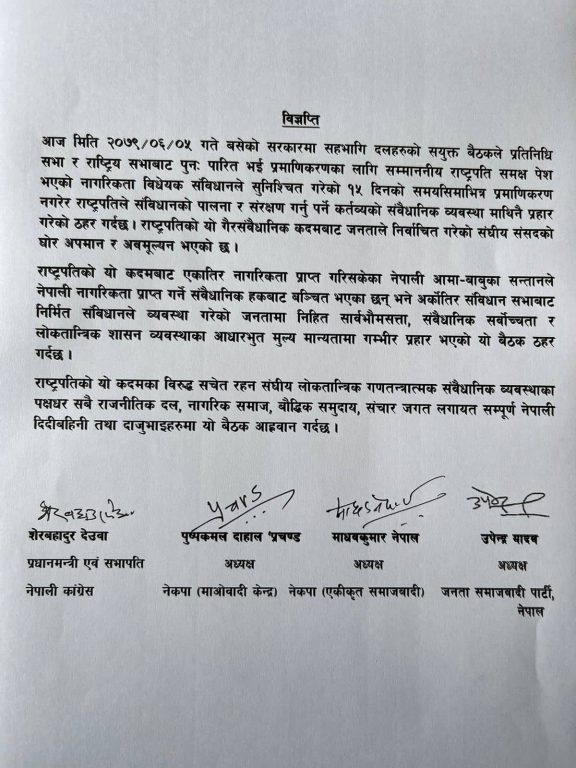 विज्ञप्ति
आज मिति २०७९/०६/०५ गते बसेको सरकारमा सहभागि दलहरुको सयुक्त बैठकले प्रतिनिधि
सभा र राष्ट्रिय सभाबाट पुनः पारित भई प्रमाणिकरणका लागि सम्माननीय राष्ट्रपति समक्ष पेश
भएको नागरिकता विधेयक संविधानले सुनिश्चित गरेको १५ दिनको समयसिमाभित्र प्रमाणिकरण
नगरेर राष्ट्रपतिले संविधानको पालना र संरक्षण गर्नु पर्ने कर्तव्यको संवैधानिक व्यवस्था माथिनै प्रहार
गरेको ठहर गर्दछ । राष्ट्रपतिको यो गैरसंवैधानिक कदमबाट जनताले निर्वाचित गरेको संघीय संसदको
घोर अपमान र अवमूल्यन भएको छ ।
राष्ट्रपतिको यो कदमबाट एकातिर नागरिकता प्राप्त गरिसकेका नेपाली आमा-बाबुका सन्तानले
नेपाली नागरिकता प्राप्त गर्ने संवैधानिक हकबाट बञ्चित भएका छन् भने अर्कोतिर संविधान सभाबाट
निर्मित संविधानले व्यवस्था गरेको जनतामा निहित सार्वभौमसत्ता, संवैधानिक सर्वोच्चता र
लोकतान्त्रिक शासन व्यवस्थाका आधारभुत मुल्य मान्यतामा गम्भीर प्रहार भएको यो बैठक ठहर
गर्दछ ।
राष्ट्रपतिको यो कदमका विरुद्ध सचेत रहन संघीय लोकतान्त्रिक गणतन्त्रात्मक संवैधानिक व्यवस्थाका
पक्षधर सबै राजनीतिक दल, नागरिक समाज, बौद्धिक समुदाय, संचार जगत लगायत सम्पूर्ण नेपाली
दिदीबहिनी तथा दाजुभाइहरुमा यो बैठक आह्रवान गर्दछ ।
शेरबहादुर देउवा पुष्पकमल दाहाल 'प्रचण्ड माधवकुमार नेपाल उपेन्द्र यादव
प्रधानमन्त्री एवं सभापति अध्यक्ष अध्यक्ष अध्यक्ष
नेपाली कांग्रेस नेकपा (माओवादी केन्द्र) नेकपा (एकीकृत समाजवादी) जनता समाजबादी पार्टी,
नेपाल